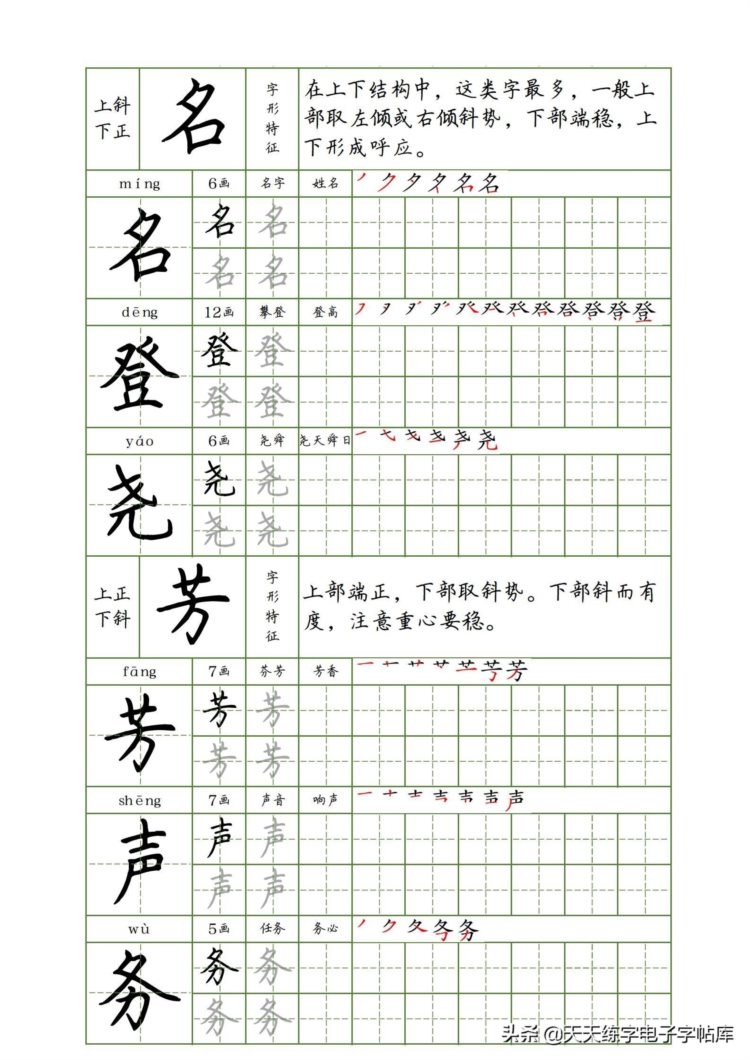 上斜
下正
名
字形特征
在上下结构中，这类字最多，一般上
部取左倾或右倾斜势，下部端稳，上
下形成呼应。
míng 6画 名字 姓名
名 名 名
名 名
dēng 12画 攀登 登高
登 登 登
登 登
yáo 6画 尧舜 尧天舜日
尧 尧 尧
尧 尧
上正
下斜
芳
字形特征
上部端正，下部取斜势。下部斜而有
度，注意重心要稳。
fāng 7画 芬芳 芳香
芳 芳 芳
芳 芳
shēng 7画 声音 响声
声 声 声
声 声
wù 5画 任务 务必
务 务 务
务 务
头条 @天天练字电子字帖库